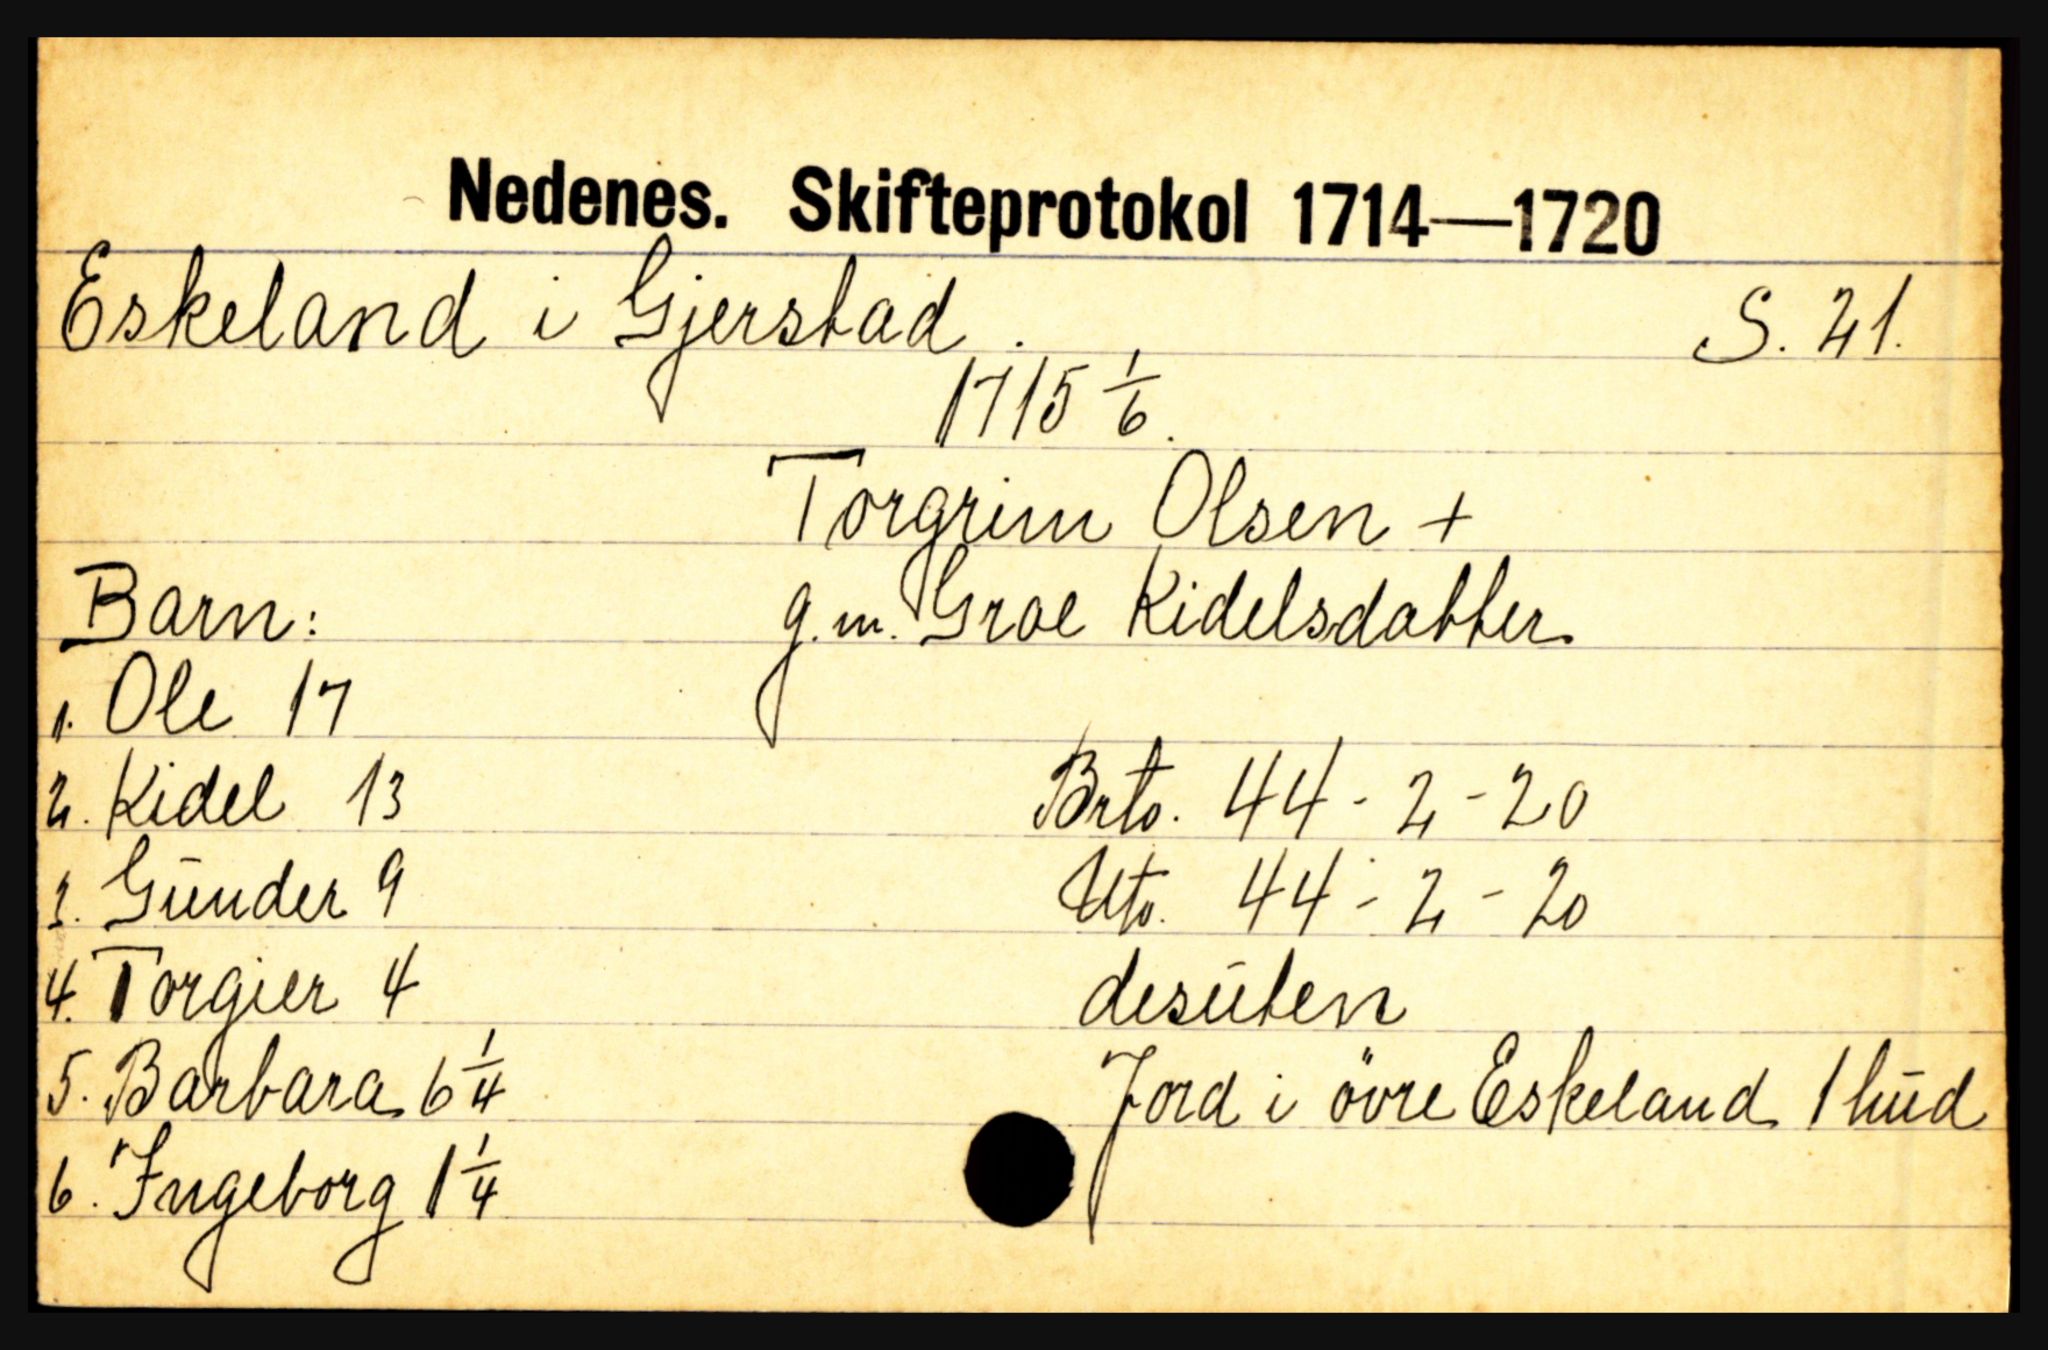 Nedenes. Skifteprotokol 1714—1720
Eskeland i Gjerstad. S. 21.
1715 1/6.
Torgrim Olsen +
g.m. Groe Kidelsdatter
Barn:
1. Ole 17
2. Kidel 13
3. Gunder 9
4. Torgier 4
5. Barbara 6 1/4
6. Ingeborg 1 1/4
Brto. 44 - 2 - 20
Nto. 44 - 2 - 20
desuten
Jord i övre Eskeland 1 hud